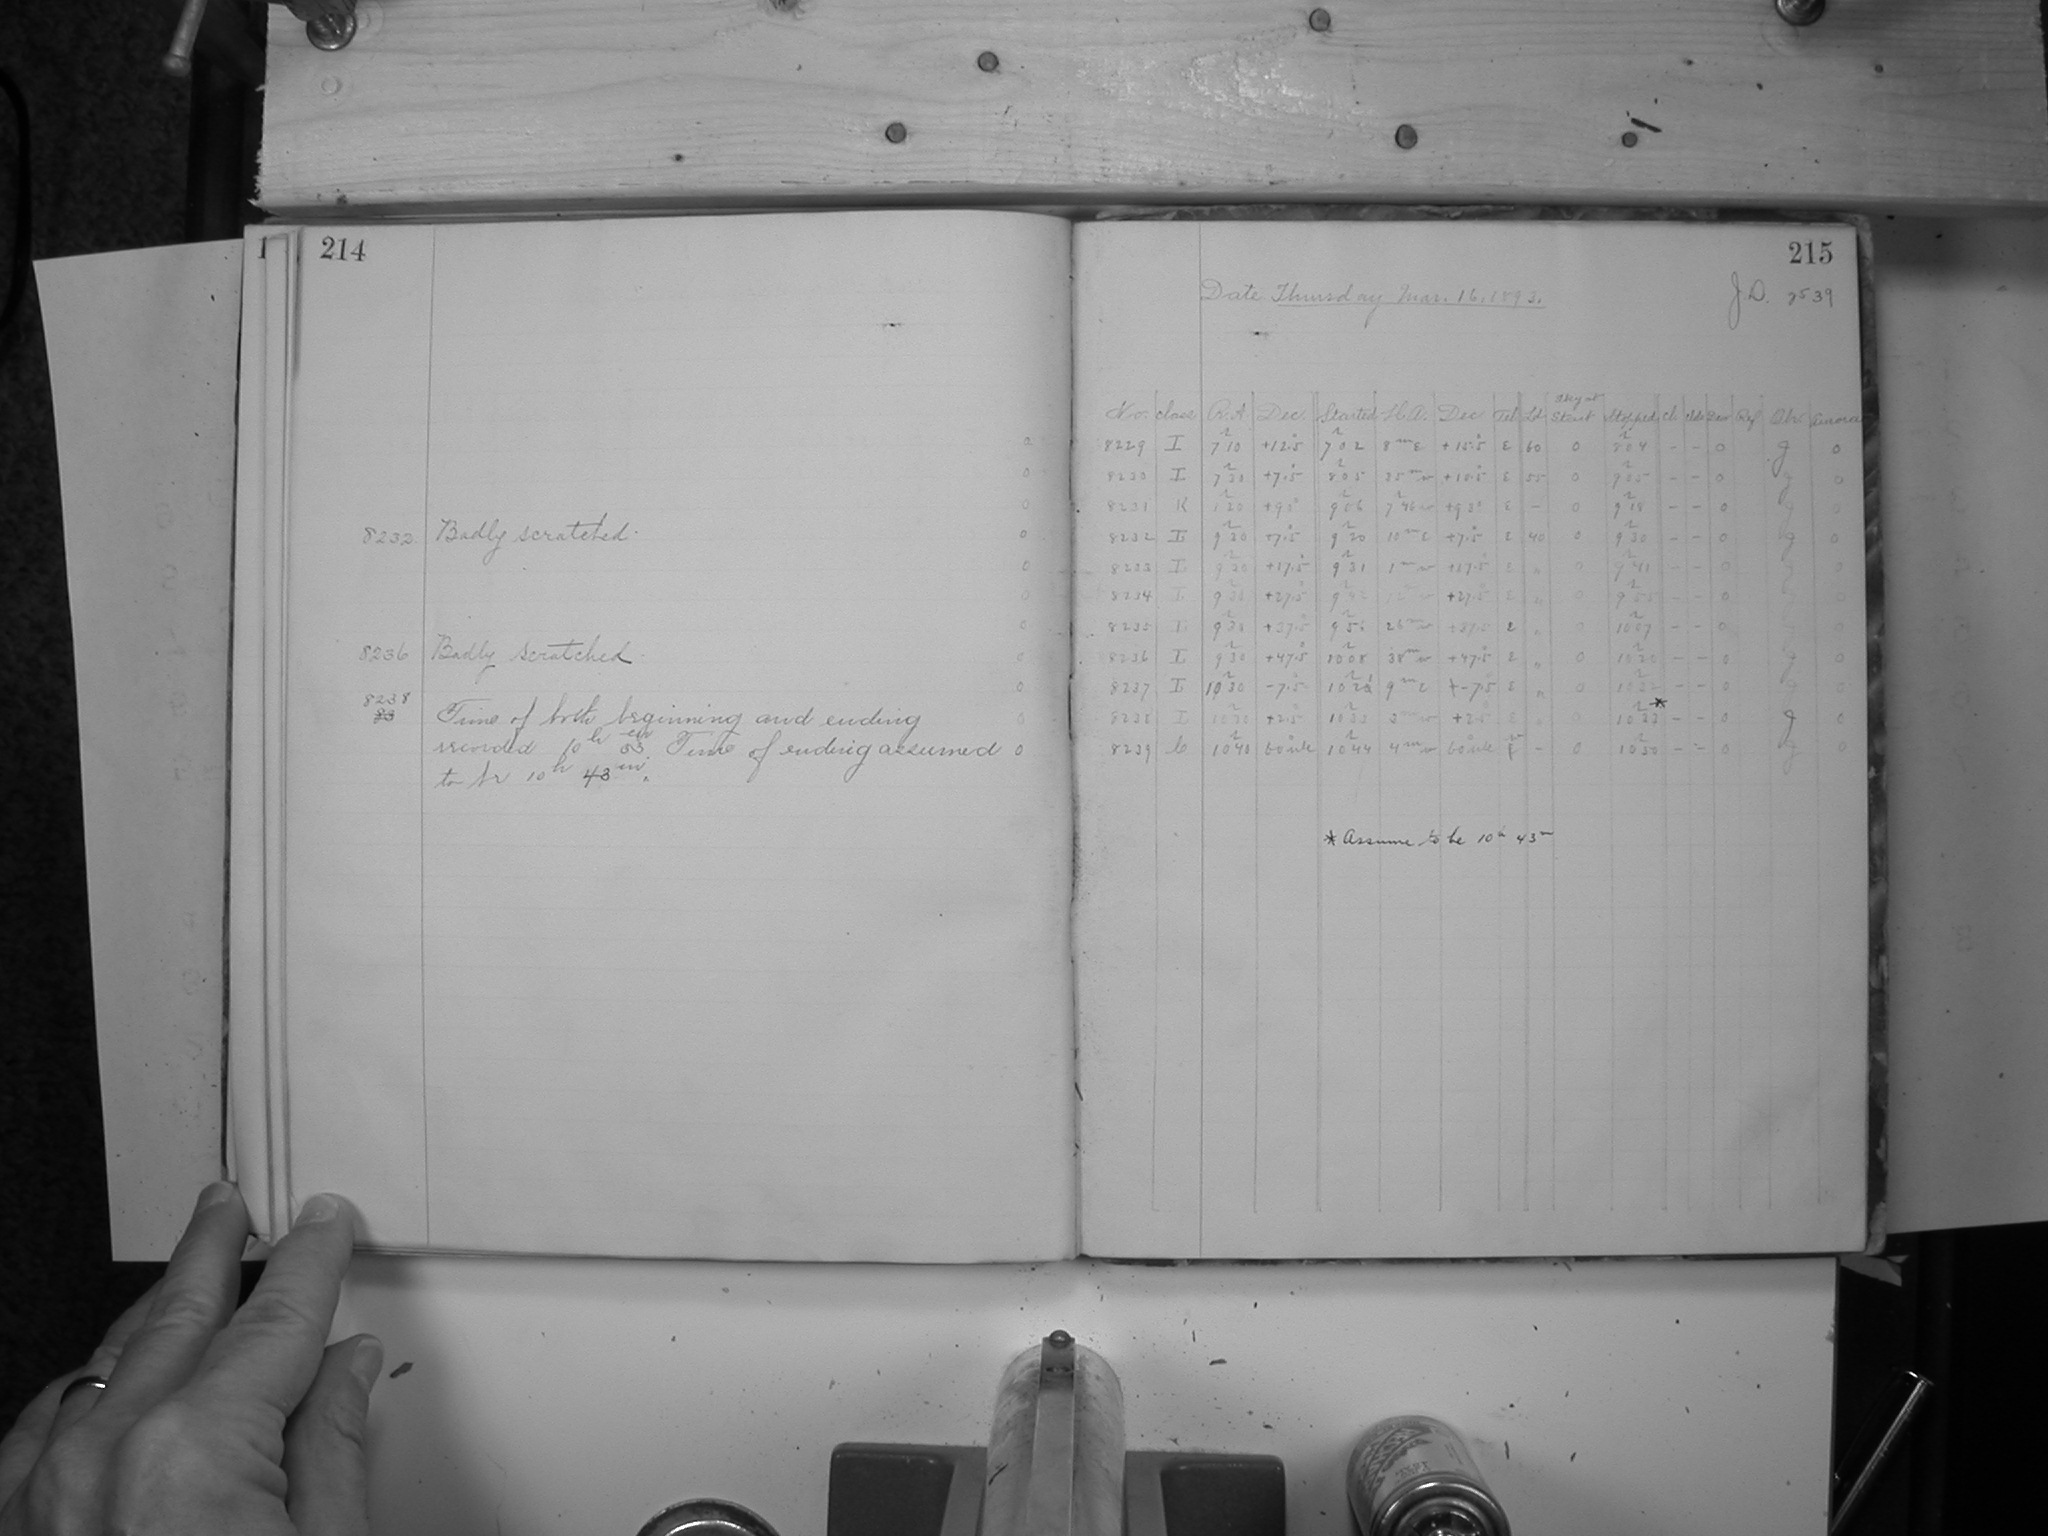 1
214
0
0
0
8232 Badly scratched. 0
0
0
0
8236 Badly scratched. 0
0
8238
83 Time of both beginning and ending 0
recorded 10h 33m. Time of ending assumed 0
to be 10h 43m.
215
Date Thursday Mar. 16, 1893.
J.D. 2539
Sky at
No. Class R.A. Dec. Started H.A. Dec Tel Ld. Start Stopped Ch Clds Dew Ref Obs. Aurora
8229 I 7h 10 +12.5 7h 02 8m E +12.5 E 60 0 8h 04 - - 0 g 0
8230 I 7h 30 +7.5 8h 05 35m w +10.5 E 55 0 9h 05 - - 0 g 0
8231 K 1h 20 +90 9h 06 7h 46 w +90 E - 0 9h 18 - - 0 g 0
8232 I 9h 30 +7.5 9h 20 10m E +7.5 E 40 0 9h 30 - - 0 g 0
8233 I 9h 30 +17.5 9h 31 1m w +17.5 E " 0 9h 41 - - 0 g 0
8234 I 9h 30 +27.5 9h 42 12m w +27.5 E " 0 9h 55 - - 0 0
8235 I 9h 30 +37.5 9h 56 26m w +37.5 E " 0 10h 07 - - 0 0
8236 I 9h 30 +47.5 10h 08 38m w +47.5 E " 0 10h 20 - - 0 g 0
8237 I 10h 30 -7.5 10h 21 9m E -7.5 E " 0 10h 32 - - 0 g 0
8238 I 10h 30 +2.5 10h 33 3m w +2.5 E " 0 10h 33* - - 0 g 0
8239 C 10h 40 10h 44 4m w - 0 10h 50 - - 0 g 0
* Assume to be 10h 43m